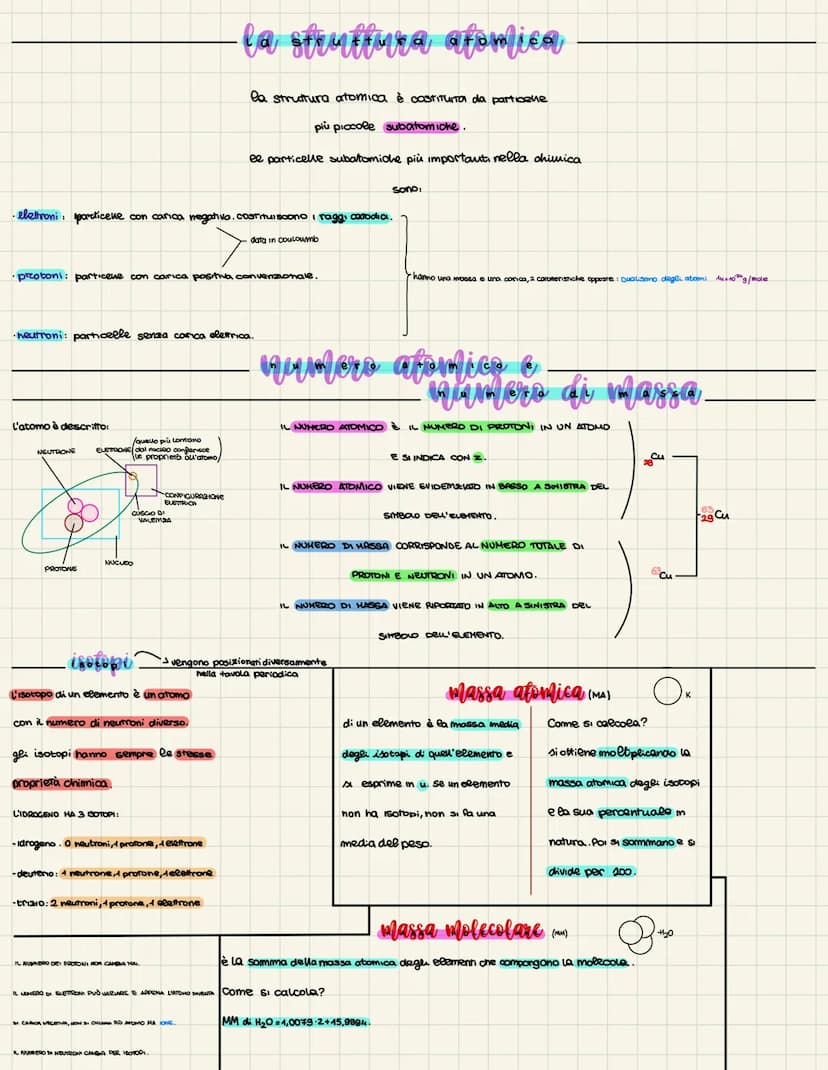 la struttura atomica
la struttura atomica è costituita da particelle
più piccole subatomiche.
le particelle subatomiche più importanti nella chimica
sono:
· elettroni: particelle con carica negativa. costituiscono i raggi catodici.
data in couloumb
· protoni: particelle con carica positiva convenzionale.
hanno una massa e una carica, 2 caratteristiche opposte:
g/mole
· neutroni: particelle senza carica elettrica.
numero atomico e
numero di massa
l'atomo è descritto:
NEUTRONE
ELETTRONE (quello più lontano
dal nucleo conferisce
le proprietà all'atomo)
CONFIGURAZIONE
ELETTRICA
GUSCIO DI
VALENZA
NUCLEO
PROTONE
IL NUMERO ATOMICO È IL NUMERO DI PROTONI IN UN ATOMO
E SI INDICA CON Z.
IL NUMERO ATOMICO VIENE EVIDENZIATO IN BASSO A SINISTRA DEL
SIMBOLO DELL'ELEMENTO.
IL NUMERO DI MASSA CORRISPONDE AL NUMERO TOTALE DI
PROTONI E NEUTRONI IN UN ATOMO.
IL NUMERO DI MASSA VIENE RIPORTATO IN ALTO A SINISTRA DEL
SIMBOLO DELL'ELEMENTO.
Cu
63
29 Cu
63
Cu
isotopi
vengono posizionati diversamente
nella tavola periodica
l'isotopo di un elemento è un atomo
con il numero di neutroni diverso.
gli isotopi hanno sempre le stesse
proprietà chimica.
L'IDROGENO HA 3 ISOTOPI:
-idrogeno. 0 neutroni, 1 protone, 1 elettrone
-deuterio: 1 neutrone, 1 protone, 1 elettrone
-trizio: 2 neutroni, 1 protone, 1 elettrone
massa atomica (MA)
K
di un elemento è la massa media
degli isotopi di quell'elemento e
si esprime in u. Se un elemento
non ha isotopi, non si fa una
media del peso.
Come si calcola?
si ottiene moltiplicando la
massa atomica degli isotopi
e la sua percentuale in
natura. Poi si sommano e si
divide per 100.
massa molecolare (MM)
H₂O
è la somma della massa atomica degli elementi che compongono la molecola.
Come si calcola?
MM di H₂O = 1,0079·2+15,9994.
IL NUMERO DEI PROTONI NON CAMBIA MAI.
IL NUMERO DI ELETTRONI PUÒ VARIARE E APPENA L'ATOMO DIVENTA
DI CARICA NEGATIVA, NON SI CHIAMA PIÙ ATOMO MA IONE.
IL NUMERO DI NEUTRONI CAMBIA PER ISOTOPI.